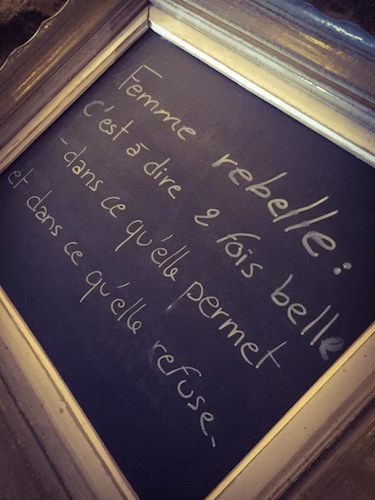 Femme rebelle:
C'est à dire 2 fois belle
-dans ce qu'elle permet
et dans ce qu'elle refuse-